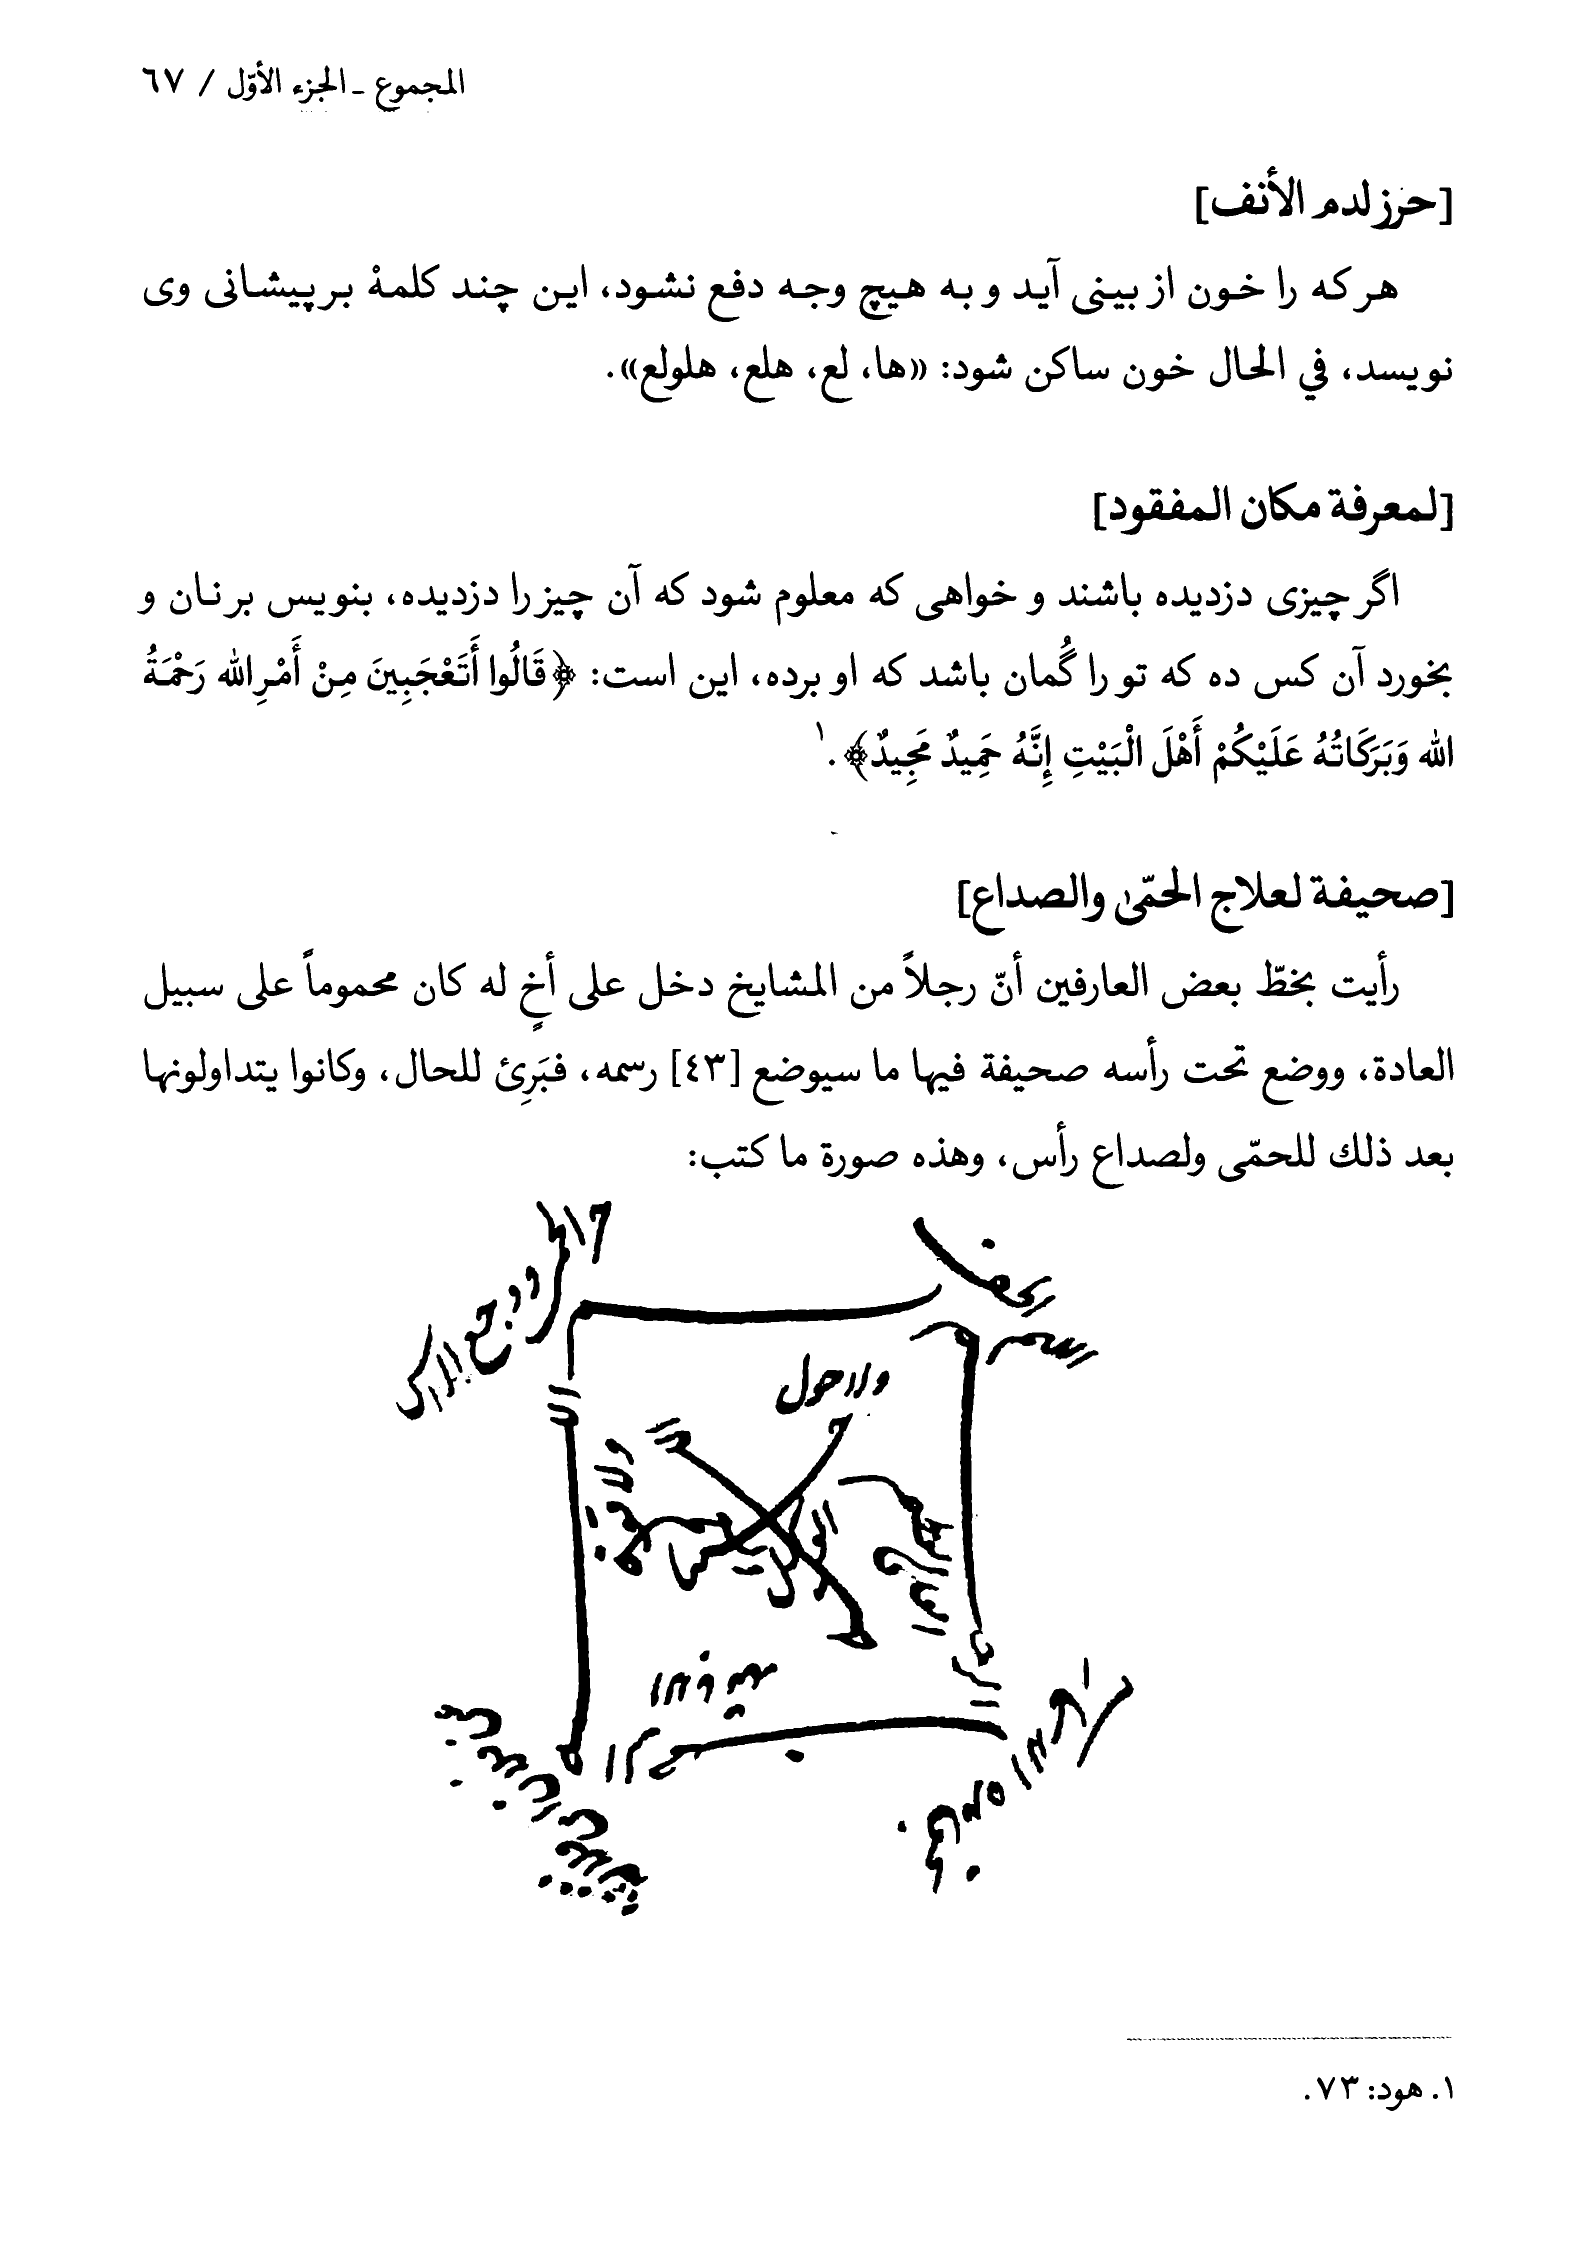 المجموع ـ الجزء الأوّل / ٦٧
[حرز لدم الأنف]
هر که را خون از بینی آید و به هیچ وجه دفع نشود، این چند کلمهٔ بر پیشانی وی
نویسد، في الحال خون ساکن شود: «ها، لع، هلع، هلولع».
[لمعرفة مكان المفقود]
اگر چیزی دزدیده باشند و خواهی که معلوم شود که آن چیز را دزدیده، بنویس بر نان و
بخورد آن کس ده که تو را گُمان باشد که او برده، این است: ﴿قَالُوا أَتَعْجَبِينَ مِنْ أَمْرِ الله رَحْمَةُ
الله وَبَرَكَاتُهُ عَلَيْكُمْ أَهْلَ الْبَيْتِ إِنَّهُ حَمِيدٌ مَجِيدٌ﴾.١
[صحيفة لعلاج الحمّى والصداع]
رأيت بخطّ بعض العارفين أنّ رجلاً من المشايخ دخل على أخٍ له كان محموماً على سبيل
العادة، ووضع تحت رأسه صحيفة فيها ما سيوضع [٤٣] رسمه، فبَرِئ للحال، وكانوا يتداولونها
بعد ذلك للحمّى ولصداع رأس، وهذه صورة ما كتب:
ولا حول
ولا قوة
الا
العلي
العظيم
١. هود: ٧٣.